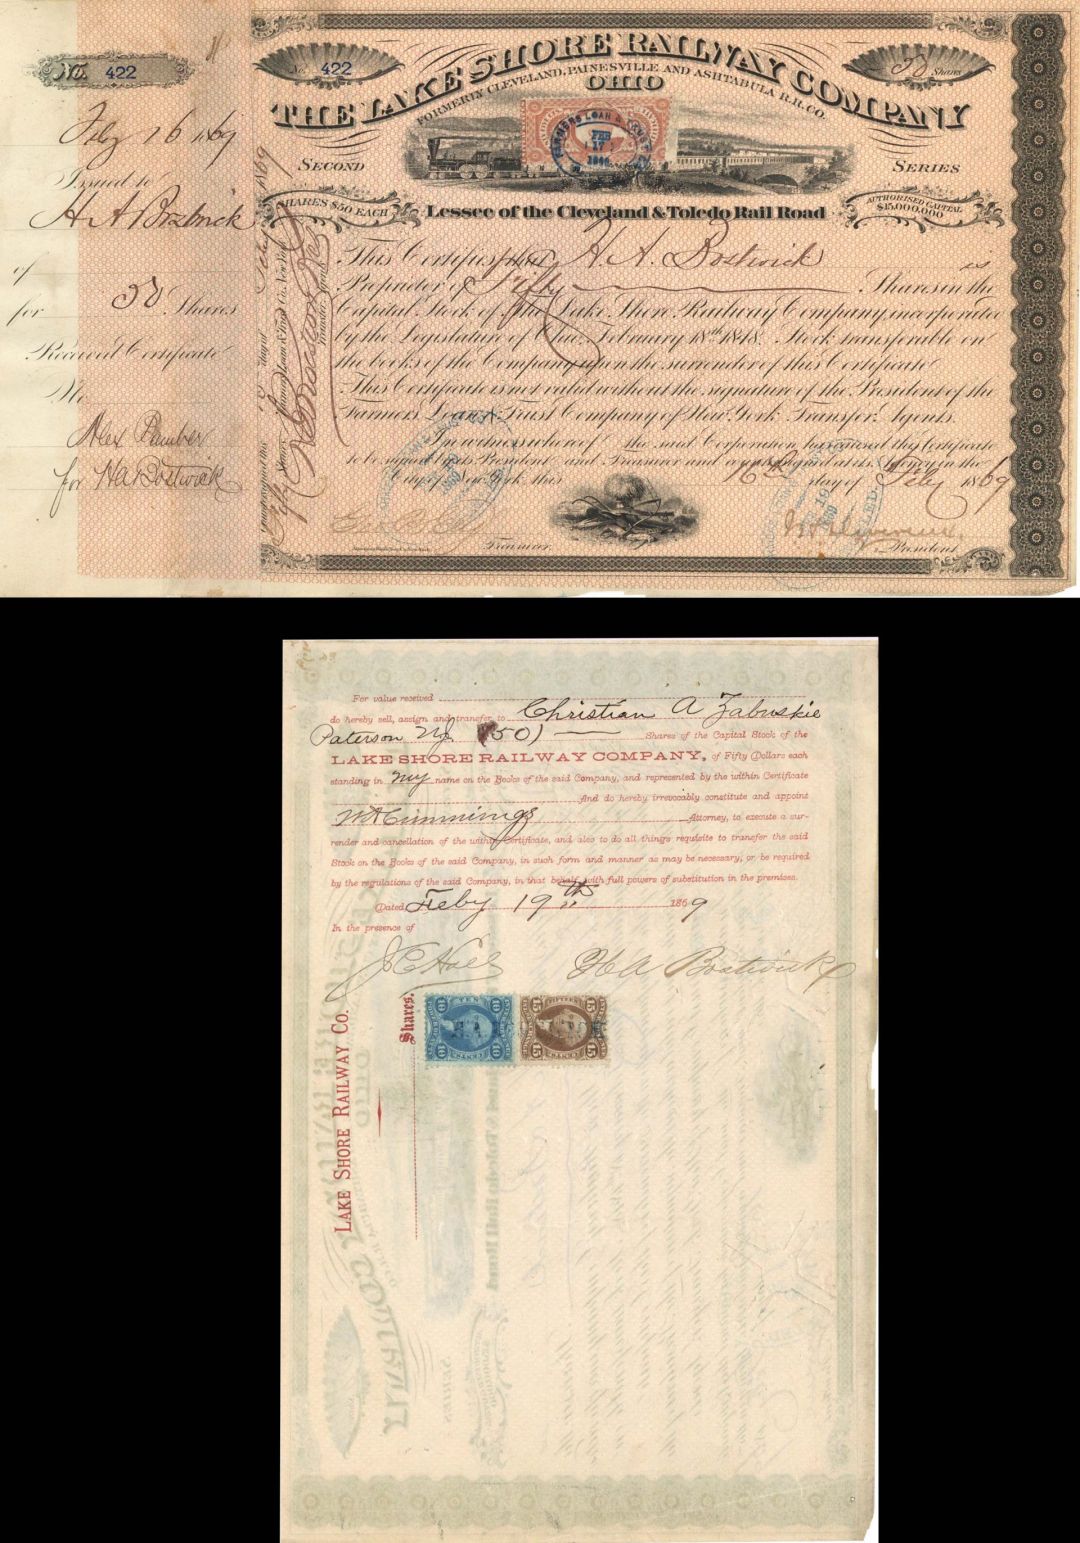 No. 422
Feby 16 1869
Issued to
H. A. Bostwick
of
for 50 Shares
Received Certificate
No.
for H A Bostwick
No 422
50 Shares
THE LAKE SHORE RAILWAY COMPANY
FORMERLY CLEVELAND, PAINESVILLE AND ASHTABULA R.R. CO.
OHIO
SECOND SERIES
SHARES $50 EACH
Lessee of the Cleveland & Toledo Rail Road
AUTHORISED CAPITAL $15,000,000
This Certifies that H. A. Bostwick is
Proprietor of Fifty Shares in the
Capital Stock of The Lake Shore Railway Company incorporated
by the Legislature of Ohio, February 18th 1848. Stock transferable on
the books of the Company upon the surrender of this Certificate
This Certificate is not valid without the signature of the President of the
Farmers Loan & Trust Company of New York Transfer Agents.
In witness whereof the said Corporation has caused this Certificate
to be signed by its President and Treasurer and countersigned at its Agency in the
City of New York, this 16th day of Feby 1869
Treasurer
President
For value received
do hereby sell, assign and transfer to Christian A Zabriskie
Paterson NJ. (50) Shares of the Capital Stock of the
LAKE SHORE RAILWAY COMPANY, of Fifty Dollars each
standing in my name on the Books of the said Company, and represented by the within Certificate
And do hereby irrevocably constitute and appoint
W A Cummings Attorney, to execute a sur-
render and cancellation of the within Certificate, and also to do all things requisite to transfer the said
Stock on the Books of the said Company, in such form and manner as may be necessary, or be required
by the regulations of the said Company, in that behalf, with full powers of substitution in the premises.
Dated Feby 19th 1869
In the presence of
H A Bostwick
LAKE SHORE RAILWAY CO.
Shares.